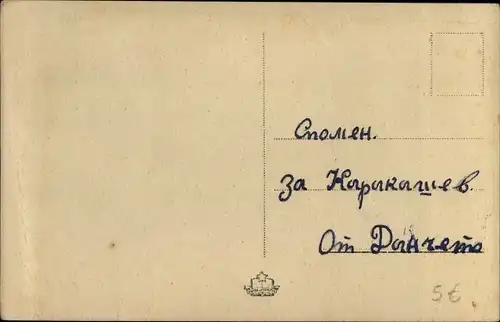 Спомен.
За Каракашев.
От Данчето
5€